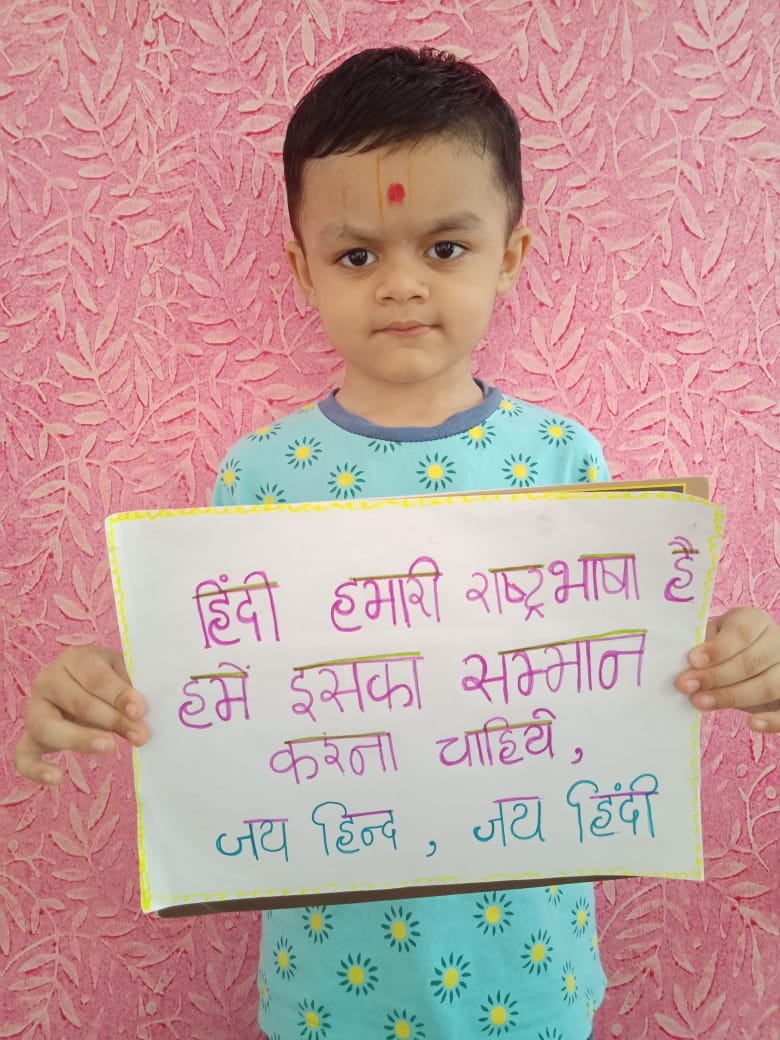 हिंदी हमारी राष्ट्रभाषा है
हमें इसका सम्मान
करना चाहिये,
जय हिन्द, जय हिंदी